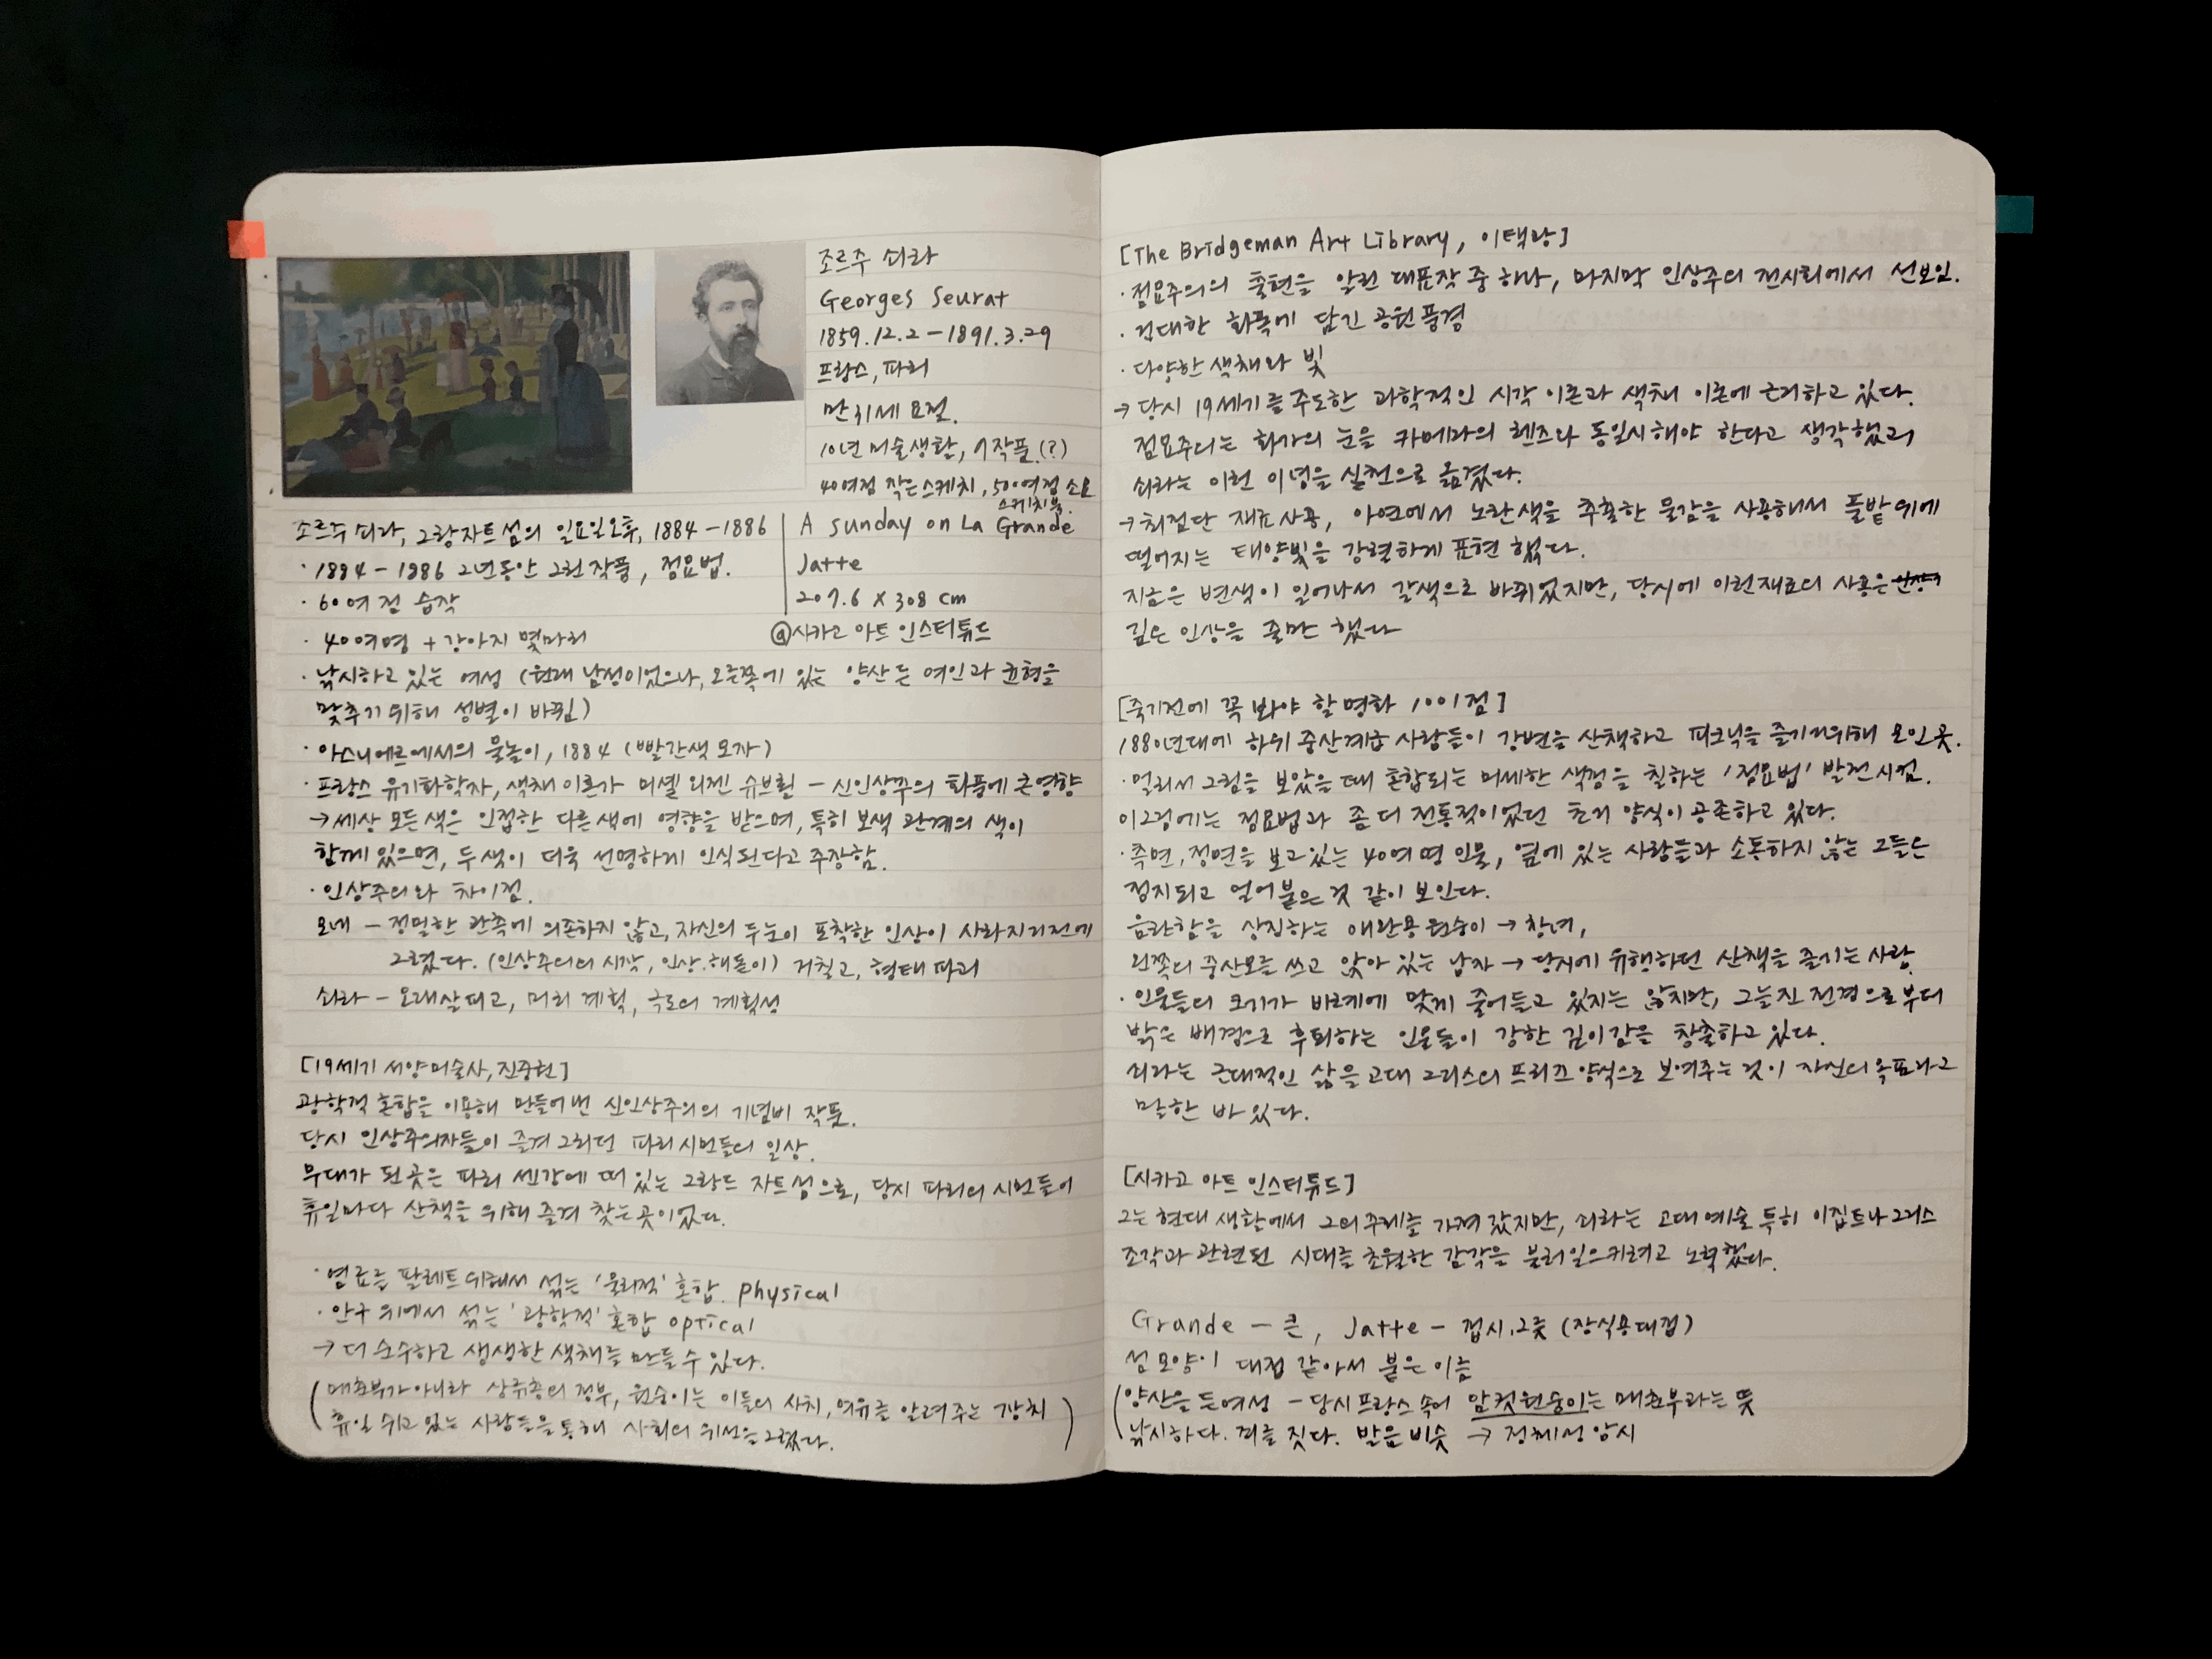 조르주 쇠라
Georges Seurat
1859.12.2 - 1891.3.29
프랑스, 파리
만 31세 요절.
10년 미술생활, 7작품.(?)
40여점 작은스케치, 500여점 소묘
스케치북.
조르주 쇠라, 그랑자트 섬의 일요일오후, 1884 - 1886
A sunday on La Grande
Jatte
207.6 X 308 cm
@시카고 아트 인스티튜드
· 1884 - 1886 2년동안 그린 작품, 점묘법.
· 60여점 습작
· 40여명 + 강아지 몇마리
· 낚시하고 있는 여성 (원래 남성이었으나, 오른쪽에 있는 양산든 여인과 균형을
맞추기 위해 성별이 바뀜)
· 아스니에르에서의 물놀이, 1884 (빨간색 모자)
· 프랑스 유기화학자, 색채 이론가 미셸 외젠 슈브뢸 - 신인상주의 화풍에 큰영향
→ 세상 모든 색은 인접한 다른색에 영향을 받으며, 특히 보색 관계의 색이
함께 있으면, 두색이 더욱 선명하게 인식된다고 주장함.
· 인상주의와 차이점.
모네 - 정밀한 관측에 의존하지 않고, 자신의 두눈이 포착한 인상이 사라지기전에
그렸다. (인상주의의 시작, 인상.해돋이) 거칠고, 형태 파괴
쇠라 - 오래살피고, 미리 계획, 극도의 계획성
[19세기 서양미술사, 진중권]
광학적 혼합을 이용해 만들어낸 신인상주의의 기념비 작품.
당시 인상주의자들이 즐겨 그리던 파리시민들의 일상.
무대가 된 곳은 파리 센강에 떠 있는 그랑드 자트섬으로, 당시 파리의 시민들이
휴일마다 산책을 위해 즐겨 찾는 곳이었다.
· 염료를 팔레트위에서 섞는 '물리적' 혼합. physical
· 안구 위에서 섞는 '광학적' 혼합 optical
→ 더 순수하고 생생한 색채를 만들수 있다.
(매춘부가 아니라 상류층의 정부, 원숭이는 이들의 사치, 여유를 알려주는 장치
휴일 쉬고 있는 사람들을 통해 사회의 위선을 그렸다.)
[The Bridgeman Art Library, 이택광]
· 점묘주의의 출현을 알린 대표작 중 하나, 마지막 인상주의 전시회에서 선보임.
· 거대한 화폭에 담긴 공원풍경
· 다양한 색채와 빛
→ 당시 19세기를 주도한 과학적인 시각 이론과 색채 이론에 근거하고 있다.
점묘주의는 화가의 눈을 카메라의 렌즈와 동일시해야 한다고 생각했고,
쇠라는 이런 이념을 실천으로 옮겼다.
→ 최첨단 재료사용, 아연에서 노란색을 추출한 물감을 사용해서 풀밭 위에
떨어지는 태양빛을 강렬하게 표현 했다.
지금은 변색이 일어나서 갈색으로 바뀌었지만, 당시에 이런재료의 사용은
깊은 인상을 줄만 했다
[죽기전에 꼭 봐야 할 명화 1001점]
1880년대에 하위 중산계급 사람들이 강변을 산책하고 피크닉을 즐기기위해 모인곳.
· 멀리서 그림을 보았을 때 혼합되는 미세한 색점을 칠하는 '점묘법' 발전시킴.
이그림에는 점묘법과 좀 더 전통적이었던 초기 양식이 공존하고 있다.
· 측면, 정면을 보고있는 40여 명 인물, 옆에 있는 사람들과 소통하지 않는 그들은
정지되고 얼어붙은 것 같이 보인다.
음란함을 상징하는 애완용 원숭이 → 창녀,
왼쪽의 중산모를 쓰고 앉아 있는 남자 → 당시에 유행하던 산책을 즐기는 사람.
· 인물들의 크기가 비례에 맞게 줄어들고 있지는 않지만, 그늘진 전경으로부터
밝은 배경으로 후퇴하는 인물들이 강한 깊이감을 창출하고 있다.
쇠라는 근대적인 삶을 고대 그리스의 프리즈 양식으로 보여주는 것이 자신의 목표라고
말한 바 있다.
[시카고 아트 인스티튜드]
그는 현대 생활에서 그의 주제를 가져 갔지만, 쇠라는 고대 예술 특히 이집트나 그리스
조각과 관련된 시대를 초월한 감각을 불러일으키려고 노력했다.
Grande - 큰, Jatte - 접시.그릇 (장식용대접)
섬 모양이 대접 같아서 붙은 이름
(양산을 든여성 - 당시프랑스 속어 암컷원숭이는 매춘부라는 뜻
낚시하다. 죄를 짓다. 발음 비슷 → 정체성 암시